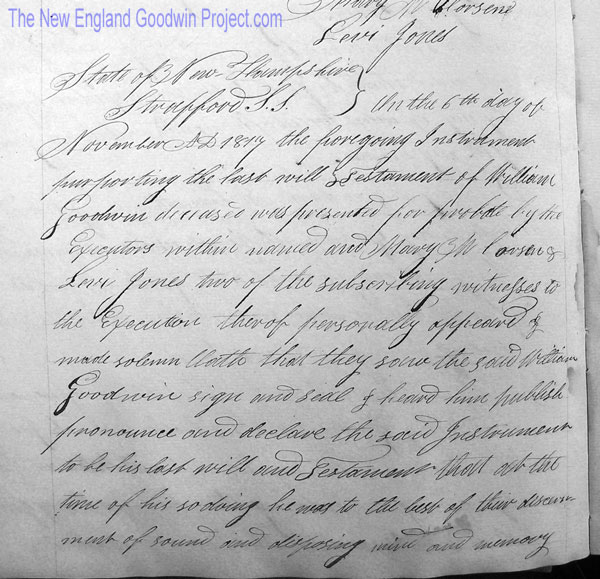 The New England Goodwin Project.com
Mary M Corson
Levi Jones
State of New-Hampshire
Strafford S.S. } On the 6th day of
November AD 1817 the foregoing Instrument
purporting the last will & Testament of William
Goodwin deceased was presented for probate by the
Executors within named and Mary M Corson &
Levi Jones two of the subscribing witnesses to
the Execution therof personally appeard &
made solemn Oath that they saw the said William
Goodwin sign and seal & heard him publish
pronounce and declare the said Instrument
to be his last will and Testament that at the
time of his so doing he was to the best of their discern
ment of sound and disposing mind and memory